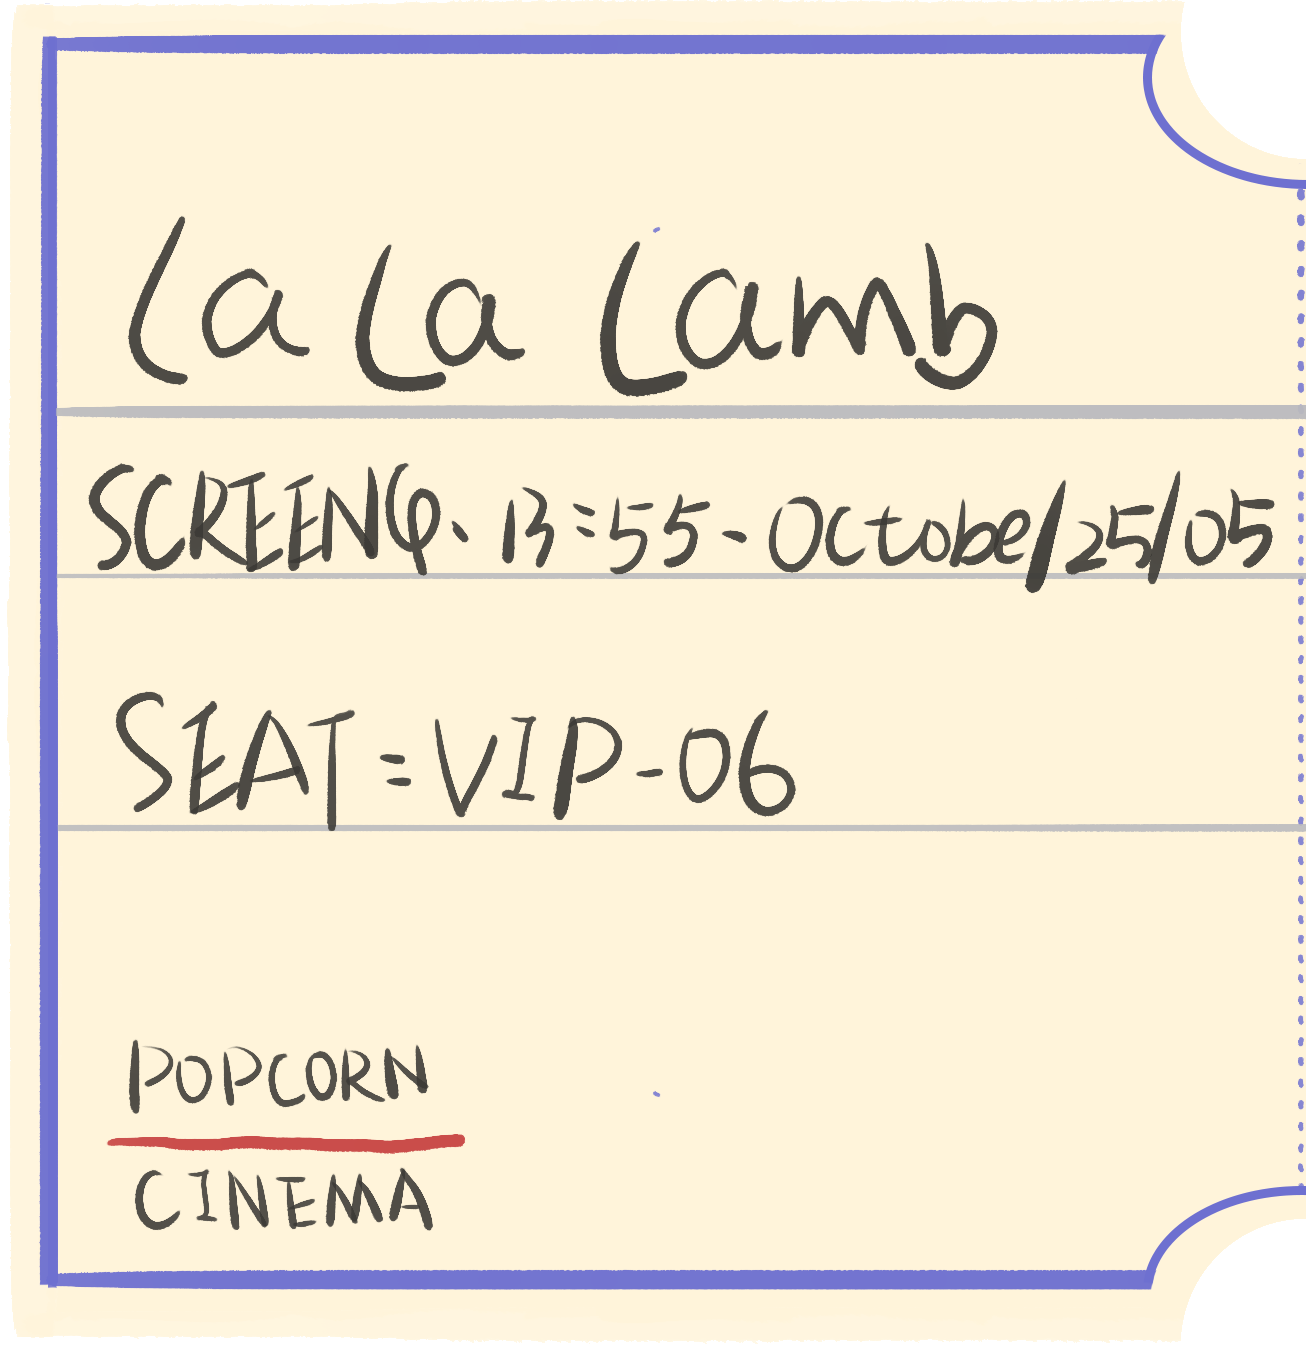 La La Lamb
SCREEN φ. 13:55-Octobe/25/05
SEAT=VIP-06
POPCORN
CINEMA